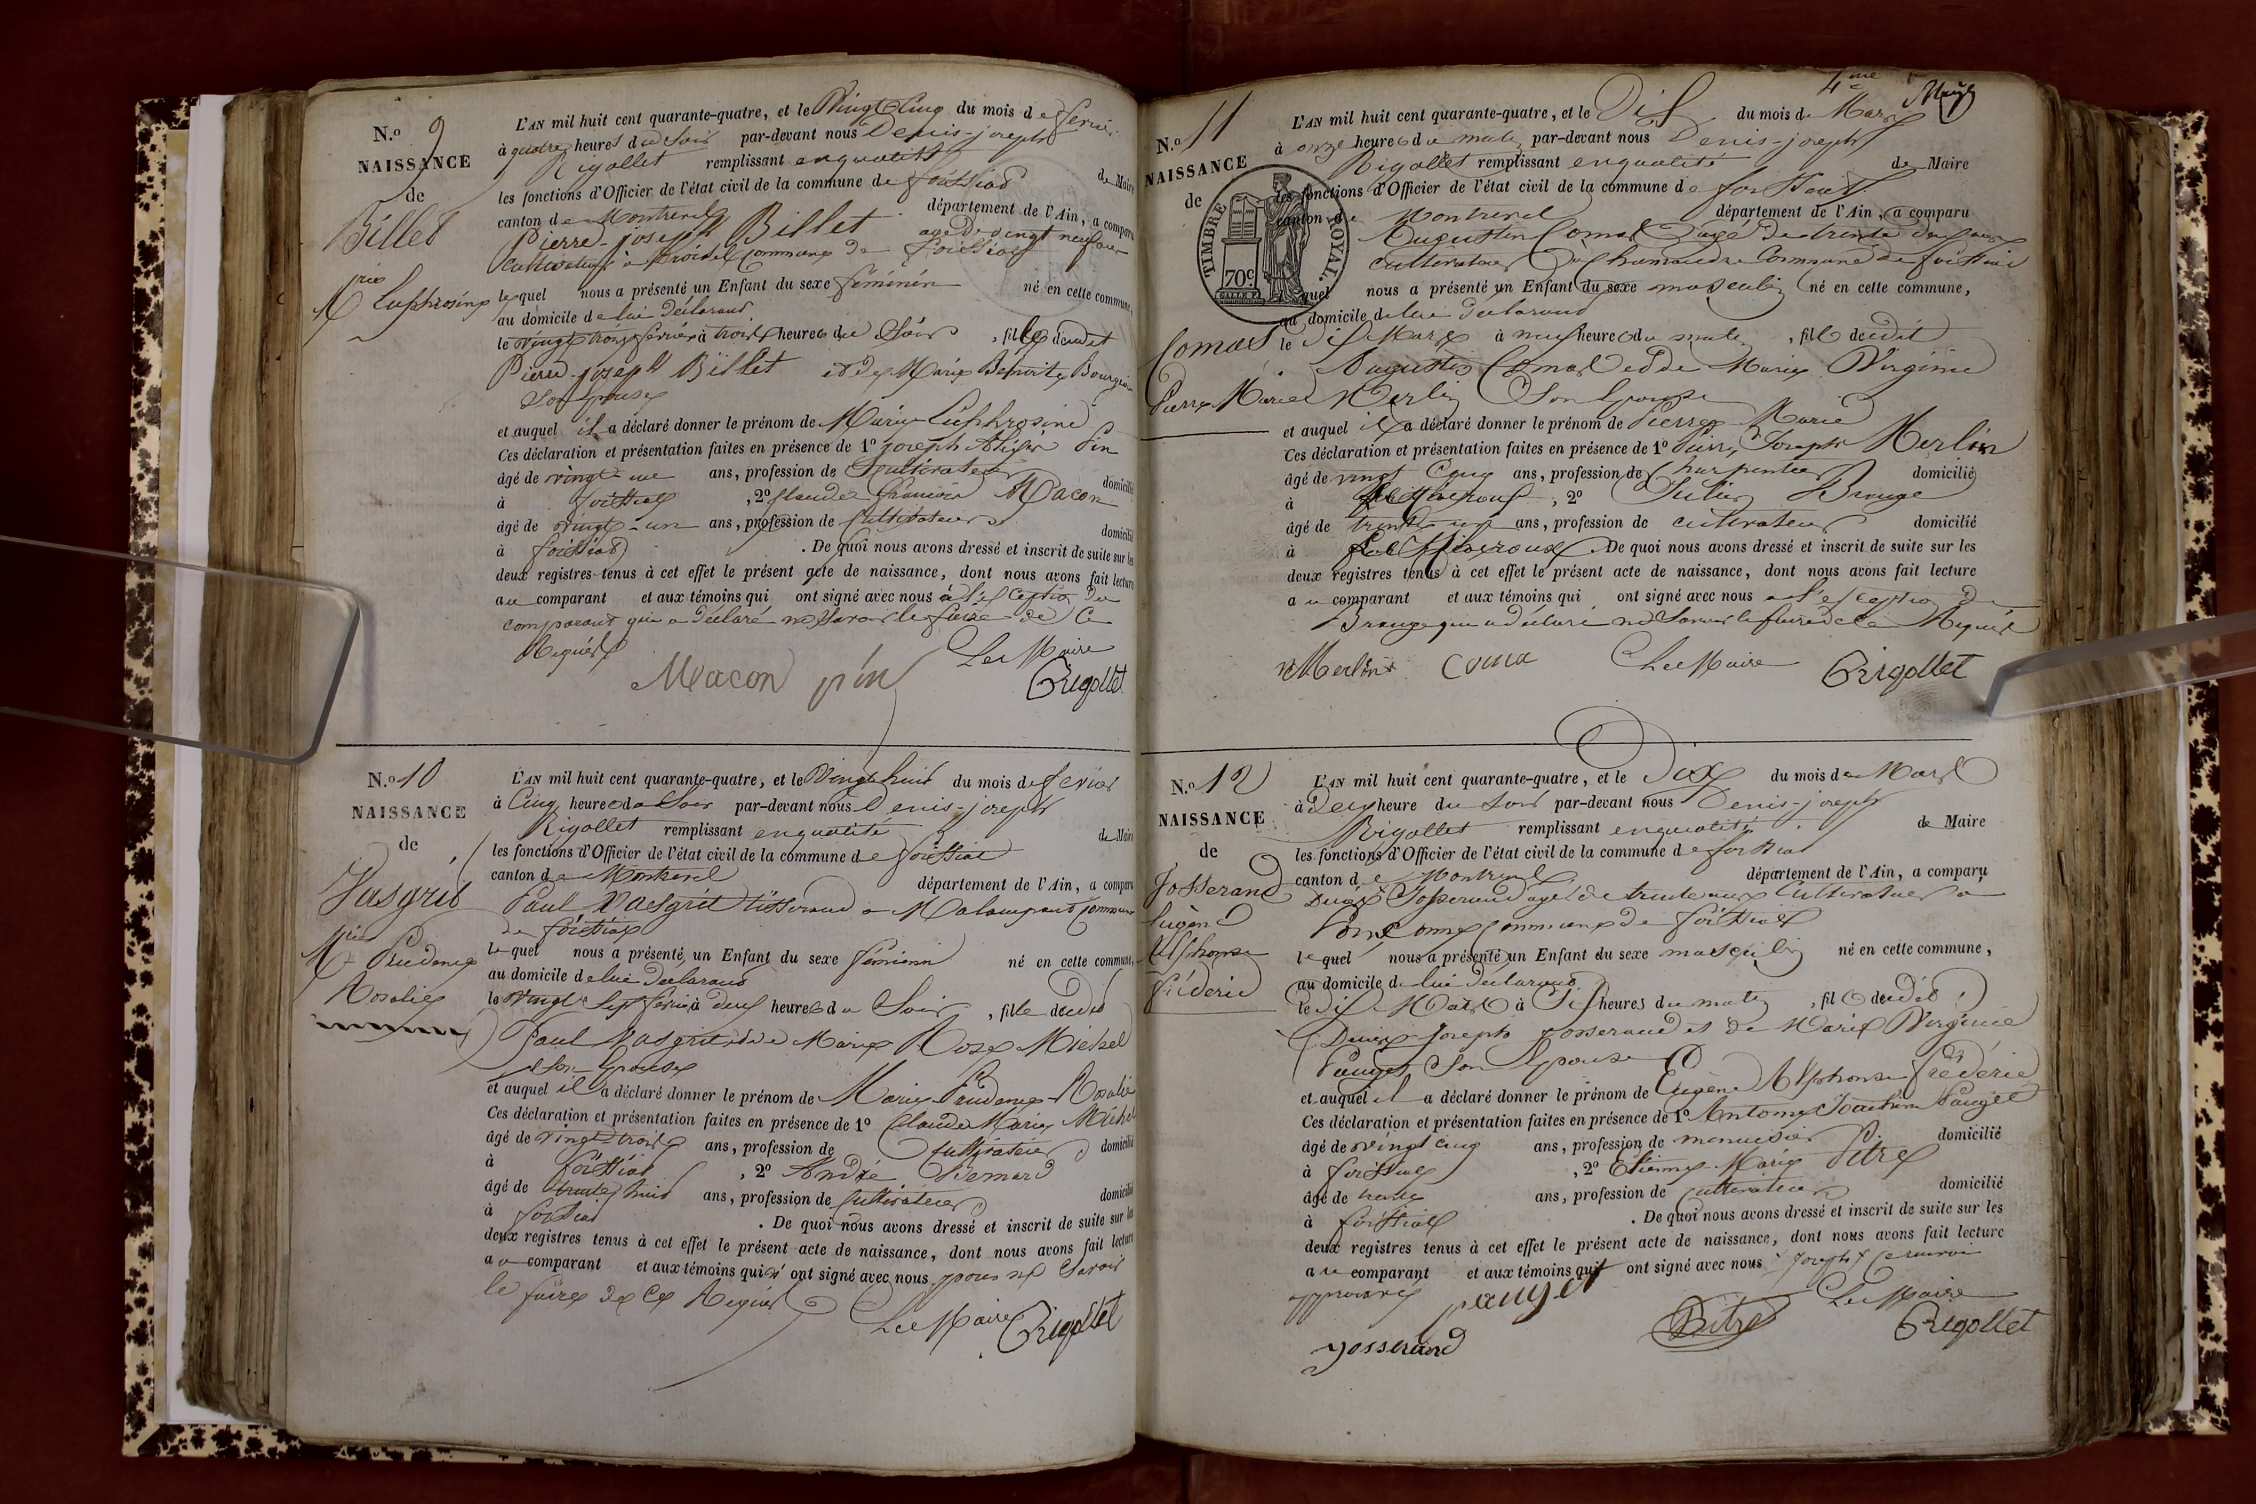 N.o 9
NAISSANCE
de
Billet
Mrie Euphrosine
L'AN mil huit cent quarante-quatre, et le Vingt Cinq du mois de fevrier
à quatre heures du soir par-devant nous Denis-joseph
Rigollet remplissant en qualité de Maire
les fonctions d'Officier de l'état civil de la commune de foissiat
canton de Montrevel département de l'Ain, a comparu
Pierre-joseph Billet agé de vingt neuf ans
cultivateur à commune de foissiat
lequel nous a présenté un Enfant du sexe féminin né en cette commune,
au domicile de lui déclarant
le vingt trois fevrier à trois heures du Soir, fille dudit
Pierre-joseph Billet et de Marie Benoite
son épouse
et auquel il a déclaré donner le prénom de Marie Euphrosine
Ces déclaration et présentation faites en présence de 1o joseph Pin
âgé de vingt ans, profession de Cultivateur domicilié
à foissiat, 2o Claude françois Macon
âgé de vingt-un ans, profession de Cultivateur domicilié
à foissiat. De quoi nous avons dressé et inscrit de suite sur les
deux registres tenus à cet effet le présent acte de naissance, dont nous avons fait lecture
au comparant et aux témoins qui ont signé avec nous à l'exception du
comparant qui a déclaré ne savoir le faire de ce
Requis
Le Maire
Macon pin Rigollet
N.o 10
NAISSANCE
de
Vasgrit
Mrie Prudence
Rosalie
L'AN mil huit cent quarante-quatre, et le Vingt huit du mois de fevrier
à Cinq heures du Soir par-devant nous Denis-joseph
Rigollet remplissant en qualité de Maire
les fonctions d'Officier de l'état civil de la commune de foissiat
canton de Montrevel département de l'Ain, a comparu
Paul Vasgrit tisserand à commune
de foissiat
lequel nous a présenté un Enfant du sexe féminin né en cette commune,
au domicile de lui déclarant
le Vingt Sept fevrier à deux heures du Soir, fille dudit
Paul Vasgrit et de Marie Rose Michel
son Epouse
et auquel il a déclaré donner le prénom de Marie Prudence Rosalie
Ces déclaration et présentation faites en présence de 1o Claude Marie Michel
âgé de vingt trois ans, profession de Cultivateur domicilié
à foissiat, 2o André Bernard
âgé de trente huit ans, profession de Cultivateur domicilié
à foissiat. De quoi nous avons dressé et inscrit de suite sur les
deux registres tenus à cet effet le présent acte de naissance, dont nous avons fait lecture
au comparant et aux témoins qui n'ont signé avec nous pour ne savoir
le faire de ce Requis
Le Maire Rigollet
4me
N.o 11
NAISSANCE
de
TIMBRE ROYAL
70c
Comas
Pierre Marie
L'AN mil huit cent quarante-quatre, et le Dix du mois de Mars
à onze heures du matin par-devant nous Denis-joseph
Rigollet remplissant en qualité de Maire
les fonctions d'Officier de l'état civil de la commune de foissiat
canton de Montrevel département de l'Ain, a comparu
Augustin Comas agé de trente deux ans
cultivateur à Commune de foissiat
lequel nous a présenté un Enfant du sexe masculin né en cette commune,
au domicile de lui déclarant
le dix Mars à neuf heures du matin, fils dudit
Augustin Comas et de Marie Virginie
Merlin Son Epouse
et auquel il a déclaré donner le prénom de Pierre Marie
Ces déclaration et présentation faites en présence de 1o Pierre Joseph Merlin
âgé de vingt Cinq ans, profession de Charpentier domicilié
à, 2o Julien Brouge
âgé de trente ans, profession de cultivateur domicilié
à. De quoi nous avons dressé et inscrit de suite sur les
deux registres tenus à cet effet le présent acte de naissance, dont nous avons fait lecture
au comparant et aux témoins qui ont signé avec nous à l'exception de
Brouge qui a déclaré ne savoir le faire de ce Requis
Merlin coma Le Maire Rigollet
N.o 12
NAISSANCE
de
Josserand
Eugène
Alphonse
fréderic
L'AN mil huit cent quarante-quatre, et le Dix du mois de Mars
à Deux heure du soir par-devant nous Denis-joseph
Rigollet remplissant en qualité de Maire
les fonctions d'Officier de l'état civil de la commune de foissiat
canton de Montrevel département de l'Ain, a comparu
Josserand agé de trente ans Cultivateur à
Commune de foissiat
lequel nous a présenté un Enfant du sexe masculin né en cette commune,
au domicile de lui déclarant
le dix Mars à Six heures du matin, fils dudit
Joseph Josserand et de Marie Virginie
Pauget Son Epouse
et auquel il a déclaré donner le prénom de Eugène Alphonse fréderic
Ces déclaration et présentation faites en présence de 1o Antoine Joachim Pauget
âgé de vingt cinq ans, profession de menuisier domicilié
à foissiat, 2o Etienne Marie Pitre
âgé de trente ans, profession de Cultivateur domicilié
à foissiat. De quoi nous avons dressé et inscrit de suite sur les
deux registres tenus à cet effet le présent acte de naissance, dont nous avons fait lecture
au comparant et aux témoins qui ont signé avec nous joseph
approuvé pauget Le Maire
josserand Pitre Rigollet